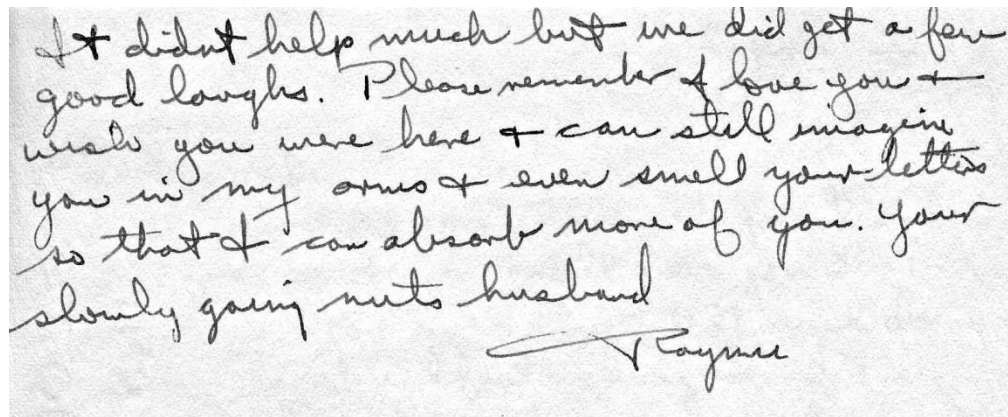 It didnt help much but we did get a few
good laughs. Please remember I love you +
wish you were here + can still imagine
you in my arms + even smell your letters
so that I can absorb more of you. Your
slowly going nuts husband
Raymie